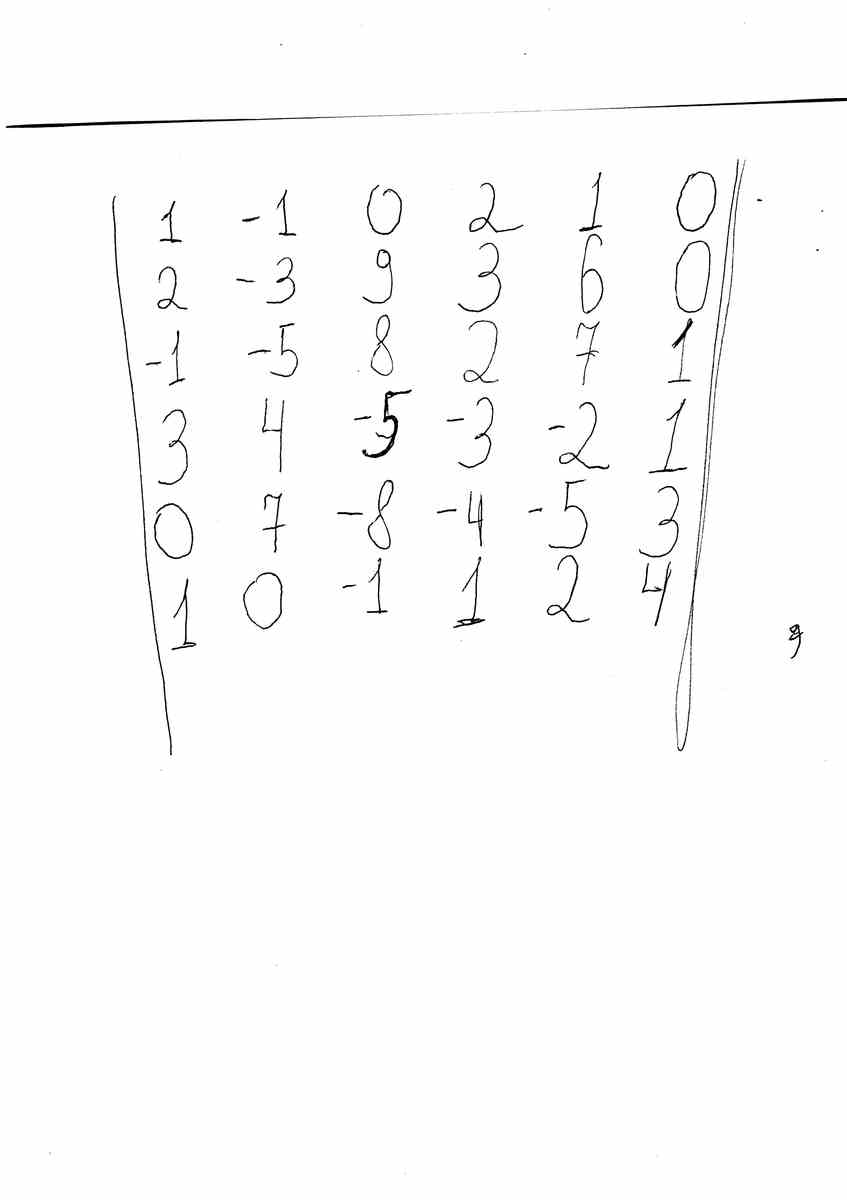 1 -1 0 2 1 0
2 -3 9 3 6 0
-1 -5 8 2 7 1
3 4 -5 -3 -2 1
0 7 -8 -4 -5 3
1 0 -1 1 2 4